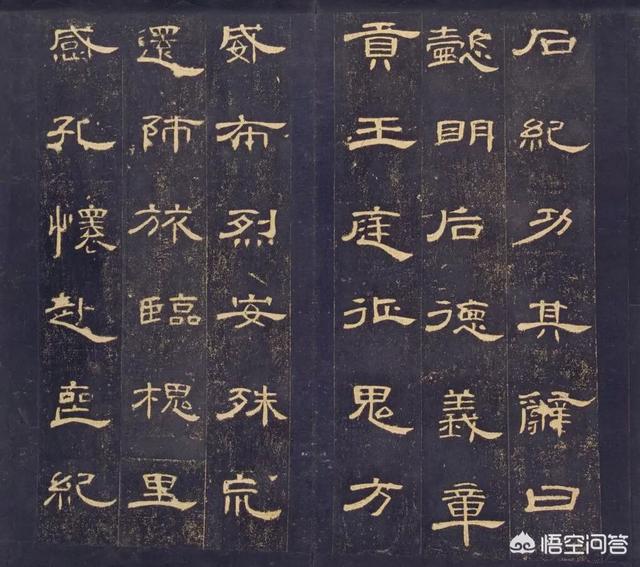 石紀功其辭曰
懿明后德義章
貢王庭征鬼方
威布烈安殊荒
還師旅臨槐里
感孔懷赴喪紀
悟空问答